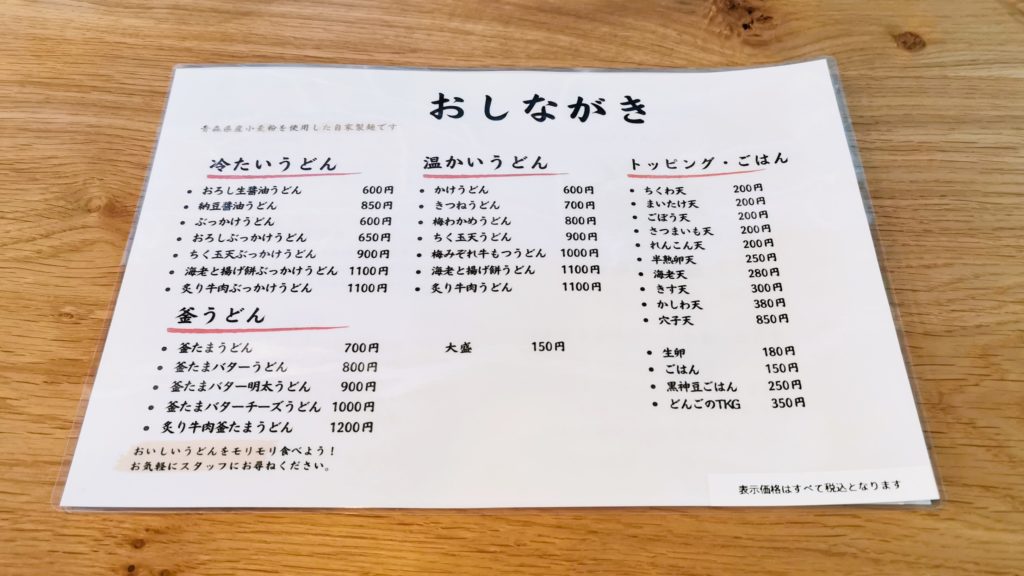 おしながき
青森県産小麦粉を使用した自家製麺です
冷たいうどん
おろし生醤油うどん 600円
納豆醤油うどん 850円
ぶっかけうどん 600円
おろしぶっかけうどん 650円
ちく玉天ぶっかけうどん 900円
海老と揚げ餅ぶっかけうどん 1100円
炙り牛肉ぶっかけうどん 1100円
温かいうどん
かけうどん 600円
きつねうどん 700円
梅わかめうどん 800円
ちく玉天うどん 900円
梅みぞれ牛もつうどん 1000円
海老と揚げ餅うどん 1100円
炙り牛肉うどん 1100円
トッピング・ごはん
ちくわ天 200円
まいたけ天 200円
ごぼう天 200円
さつまいも天 200円
れんこん天 200円
半熟卵天 250円
海老天 280円
きす天 300円
かしわ天 380円
穴子天 850円
生卵 180円
ごはん 150円
黒神豆ごはん 250円
どんごのTKG 350円
釜うどん
釜たまうどん 700円
釜たまバターうどん 800円
釜たまバター明太うどん 900円
釜たまバターチーズうどん 1000円
炙り牛肉釜たまうどん 1200円
大盛 150円
おいしいうどんをモリモリ食べよう！
お気軽にスタッフにお尋ねください。
表示価格はすべて税込となります